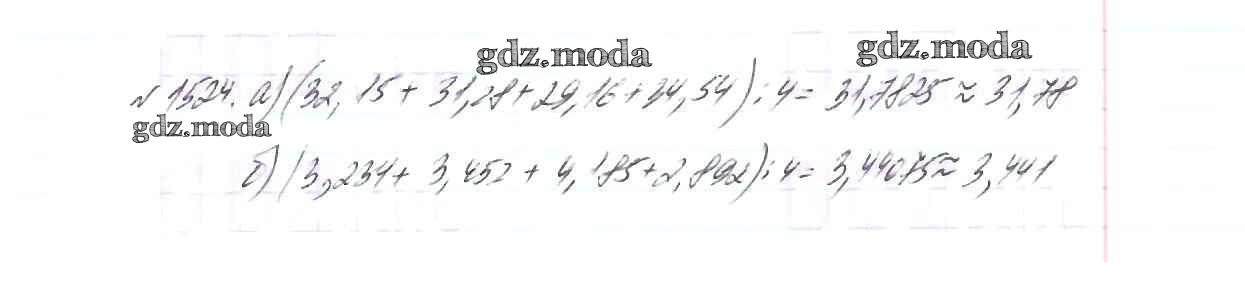 gdz.moda gdz.moda
№ 1524. а) (32,15 + 31,28 + 29,16 + 34,54) : 4 = 31,7825 ≈ 31,78
gdz.moda
б) (3,234 + 3,452 + 4,185 + 2,892) : 4 = 3,44075 ≈ 3,441